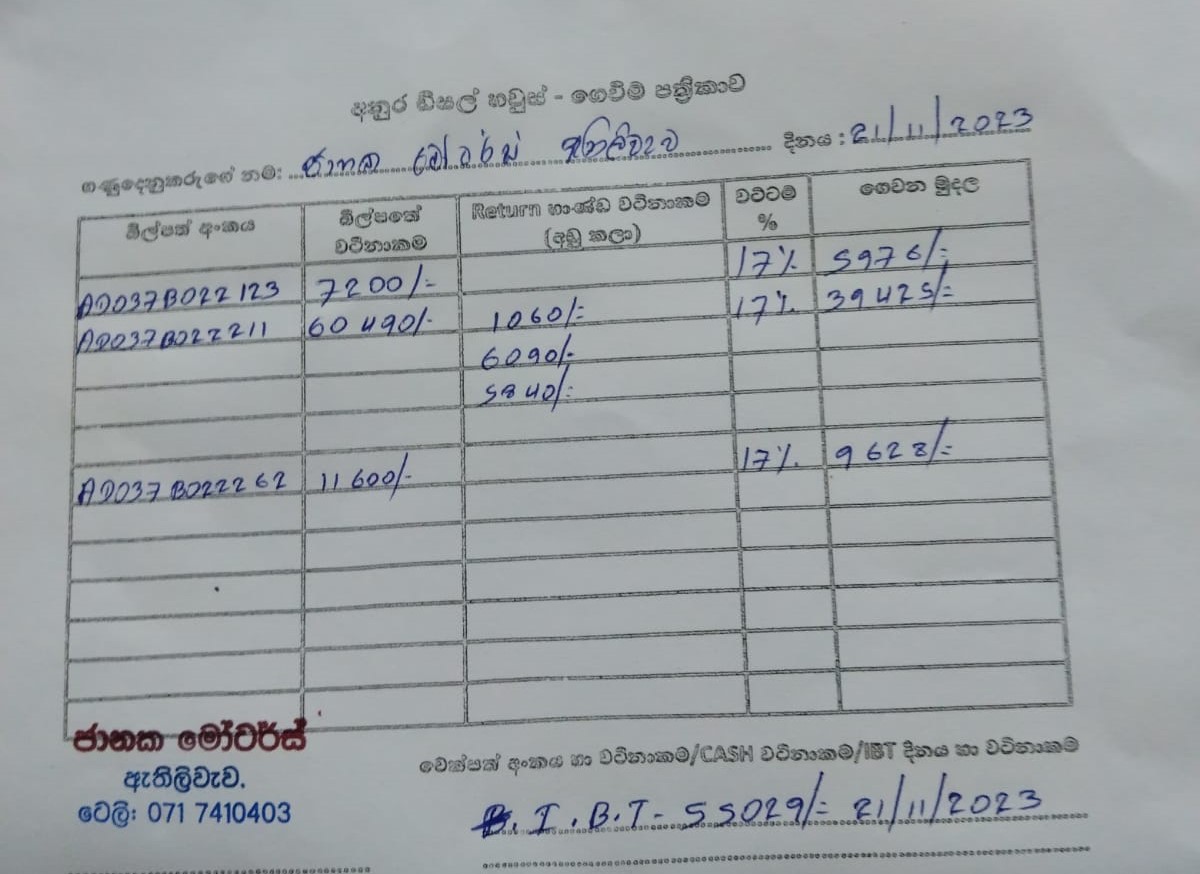 අනුර ඩීසල් හවුස් - ගෙවීම් පත්‍රිකාව
ගණුදෙනුකරුගේ නම: ජානක මෝටර්ස් ඇතිලිවැව දිනය : 21/11/2023
බිල්පත් අංකය බිල්පතේ වටිනාකම Return භාණ්ඩ වටිනාකම (අඩු කලා) වට්ටම % ගෙවන මුදල
AD037B022123 7200/- 17% 5976/-
AD037B022211 60490/- 1060/- 17% 39425/-
6090/-
5840/-
AD037B022262 11600/- 17% 9628/-
ජානක මෝටර්ස්
ඇතිලිවැව.
ටෙලි: 071 7410403
චෙක්පත් අංකය හා වටිනාකම/CASH වටිනාකම/IBT දිනය හා වටිනාකම
I.B.T - 55029/= 21/11/2023